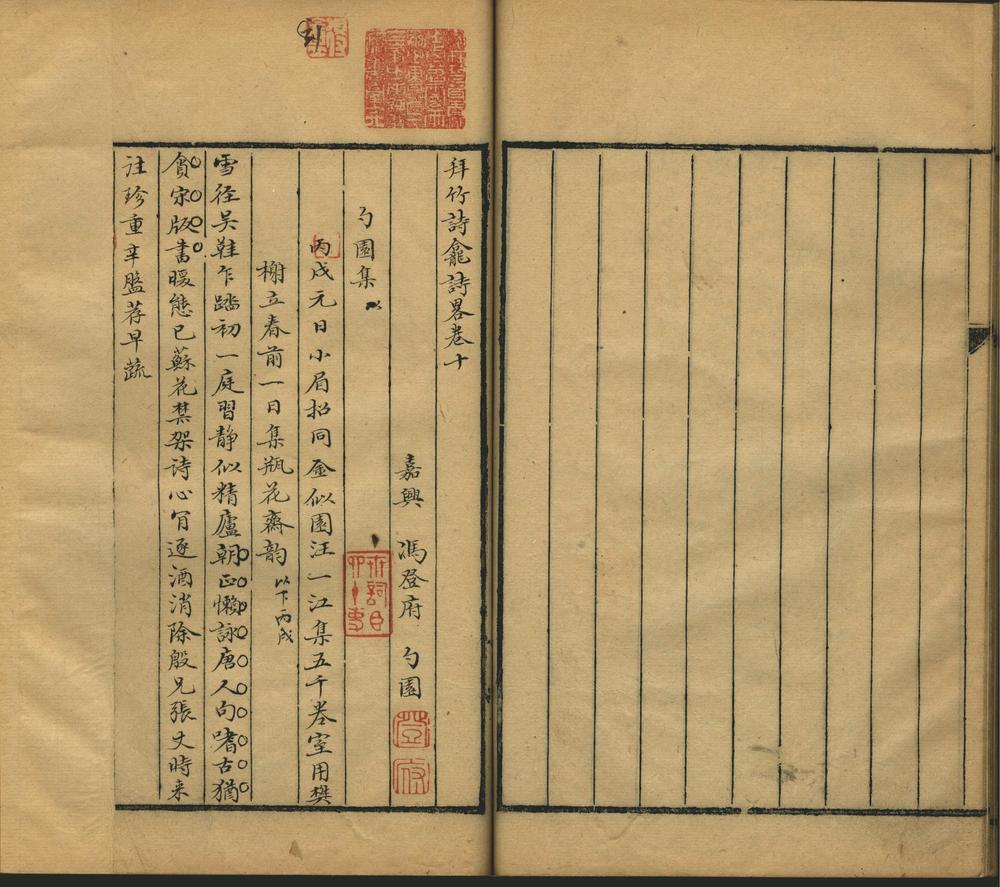 拜竹詩龕詩畧卷十
嘉興 馮登府 勺園
勺園集
丙戌元日小眉招同金似園汪一江集五千卷室用樊
榭立春前一日集瓶花齋韵 以下丙戌
雪径吴鞋乍踏初一庭習静似精廬朝正懶詠唐人句嗜古猶
貪宋版書暖態已蘇花禁架诗心肎逐酒消除殷兄張丈時来
往珍重辛盤荐早蔬
登府